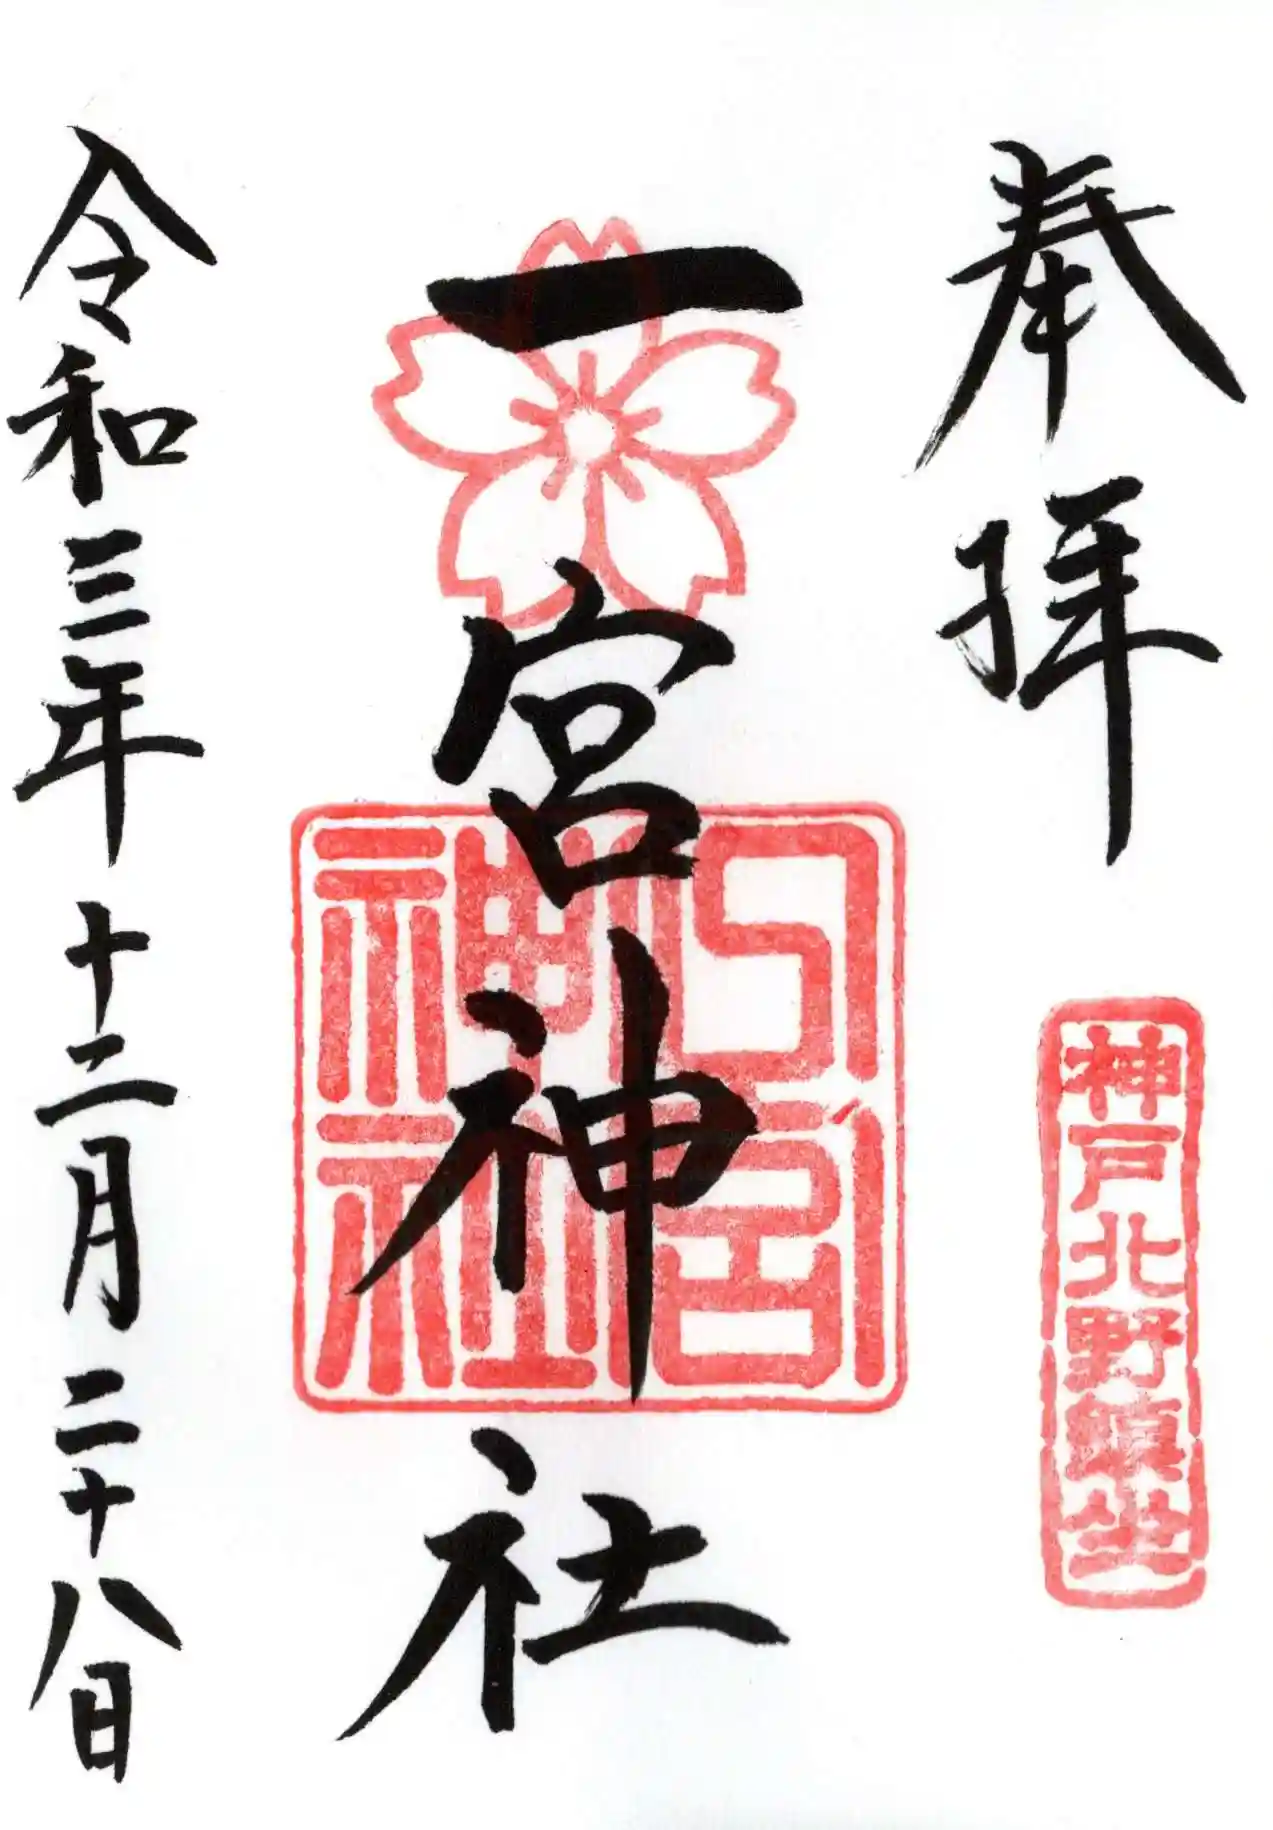 奉拝
神戸北野鎮坐
一宮神社
一宮
神社
令和三年十二月二十八日